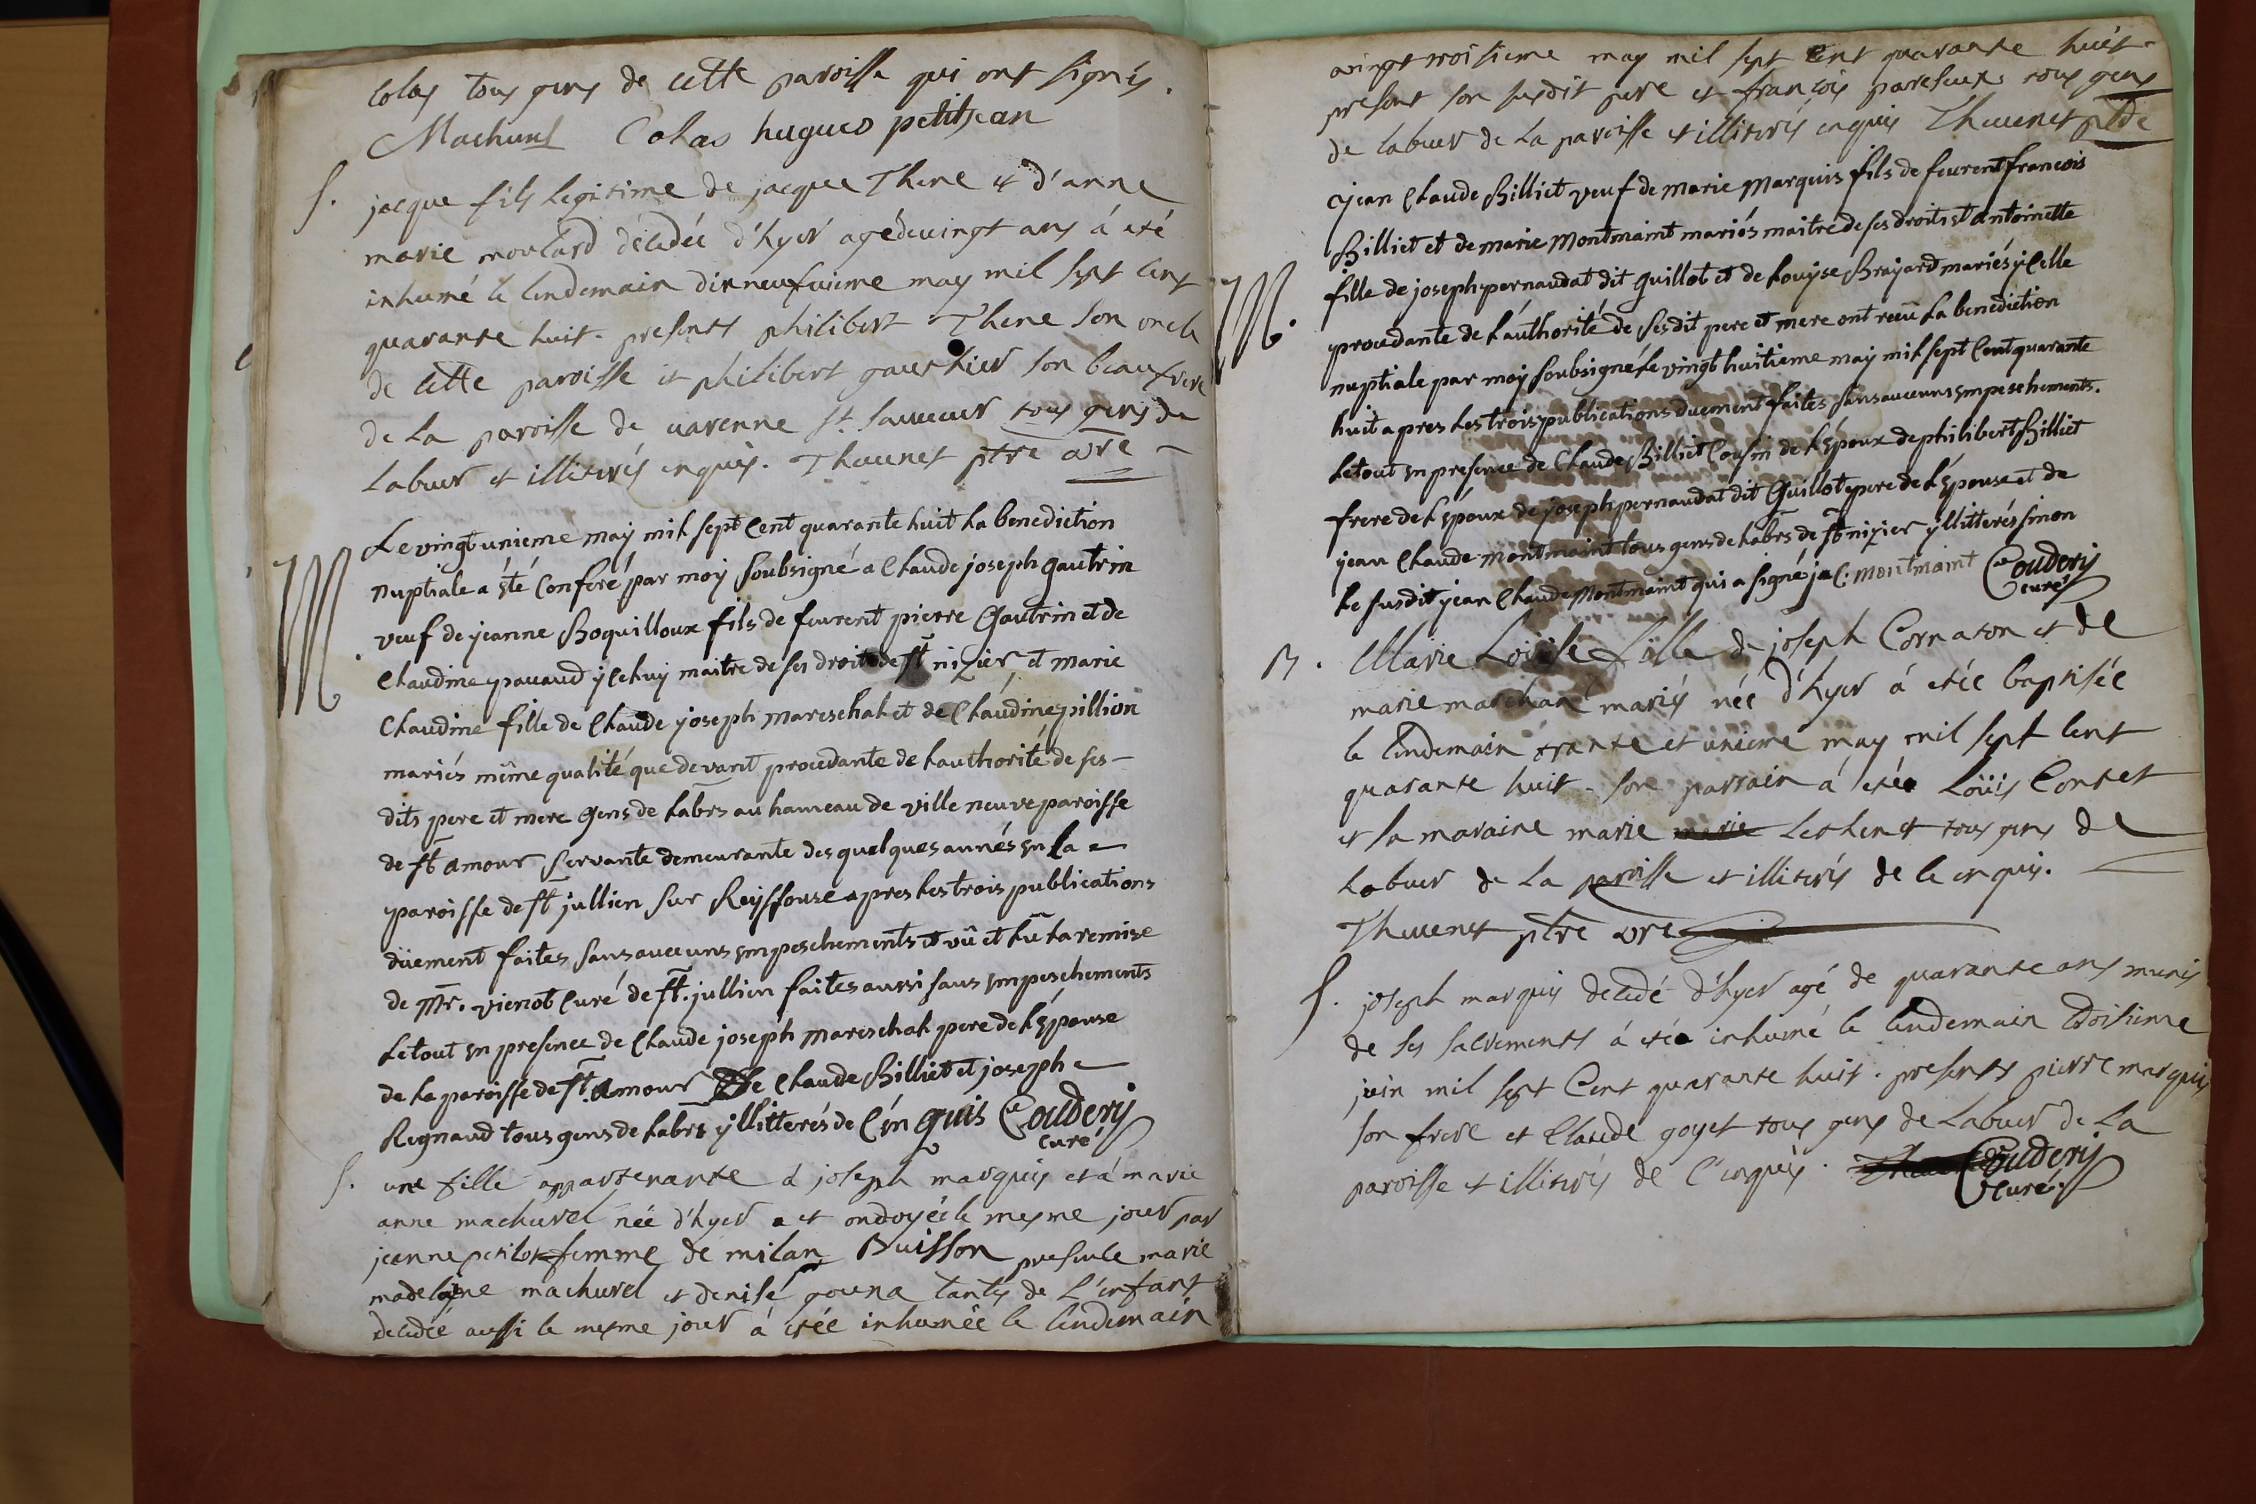 Colas tous gens de cette paroisse qui ont signés.
Machurel Colas hugues petitjean
S. jacque fils legitime de jacque Thene et d'anne
marie moulard décédée d'hyer agé de vingt ans á eté
inhumé le lendemain dix neufvieme may mil sept cent
quarante huit. presents philibert Thene son oncle
de cette paroisse et philibert gauthier son beaufrere
de la paroisse de varenne st. sauveur tous gens de
labeur et illiterés enquis. Thevenet ptre vre
M. Le vingt unieme may mil sept cent quarante huit la benediction
nuptiale a êté conferé par moy soubsigné a claude joseph gautrin
veuf de jeanne Boquilloux fils de feurent pierre Gautrin et de
claudine pavaud yceluy maitre de ses droits de st nizier, et marie
claudine fille de claude joseph mareschal et de claudine pillion
mariés même qualité que devant procedante de lauthorité de ses
dits pere et mere gens de labrs au hameau de ville neuve paroisse
de st amour servante demeurante des quelques annés en la
paroisse de st jullien sur Reyssouse apres les trois publications
düement faites sans aucuns empeschements et vû et lû la remise
de Mr. vienot curé de st. jullien faites aussi sans empeschements
le tout en presence de claude joseph mareschal pere de l'épouse
de la paroisse de st. amour De claude Billiet et joseph
Regnaud tous gens de labrs yllitterés de l'en quis Coudery
curé
S. une fille appartenante á joseph marquis et á marie
anne machurel née d'hyer a et ondoyée le mesme jour par
jeanne petilot femme de milan Buisson presente marie
madelaine machurel et denise gouna tantes de l'enfant
decedée aussi le mesme jour á etée inhumée le lendemain
vingt troisieme may mil sept cent quarante huit.
present son susdit pere et françois pareseux tous gens
de labeur de la paroisse et illiterés enquis Thevenet ptre
M. jean claude Billiet veuf de marie marquis fils de feurent francois
Billiet et de marie montmaint mariés maitre de ses droits et antoinette
fille de joseph pernaudat dit guillot et de louyse Brayard mariés ycelle
procedante de láuthorité de sesdit pere et mere ont reeû la benediction
nuptiale par moy soubsigné le vingt huitieme may mil sept cent quarante
huit apres les trois publications duement faites sans aucuns empeschements.
le tout en presence de claude Billiet cousin de l'époux de philibert Billiet
frere de l'époux de joseph pernaudat dit Guillot pere de l'épouse et de
jean claude montmaint tous gens de labrs de st nizier yllitterés sinon
le susdit jean claude montmaint qui a signé j. C. montmaint Coudery
curé
B. Marie Loïise fille de joseph Cornaton et de
marie marchand mariés née d'hyer á etée baptisée
le lendemain trante et unieme may mil sept cent
quarante huit. son parrain á etée Loüis Contet
et sa maraine marie marie Lethenet tous gens de
labeur de la paroisse et illiterés de le enquis.
Thevenet ptre vre
S. joseph marquis decedé d'hyer agé de quarante ans munis
de ses sacrements á etée inhumé le lendemain troisieme
juin mil sept cent quarante huit. presents pierre marquis
son frere et Claude goyet tous gens de labeur de la
paroisse et illiterés de l'enquis. Coudery
curé.